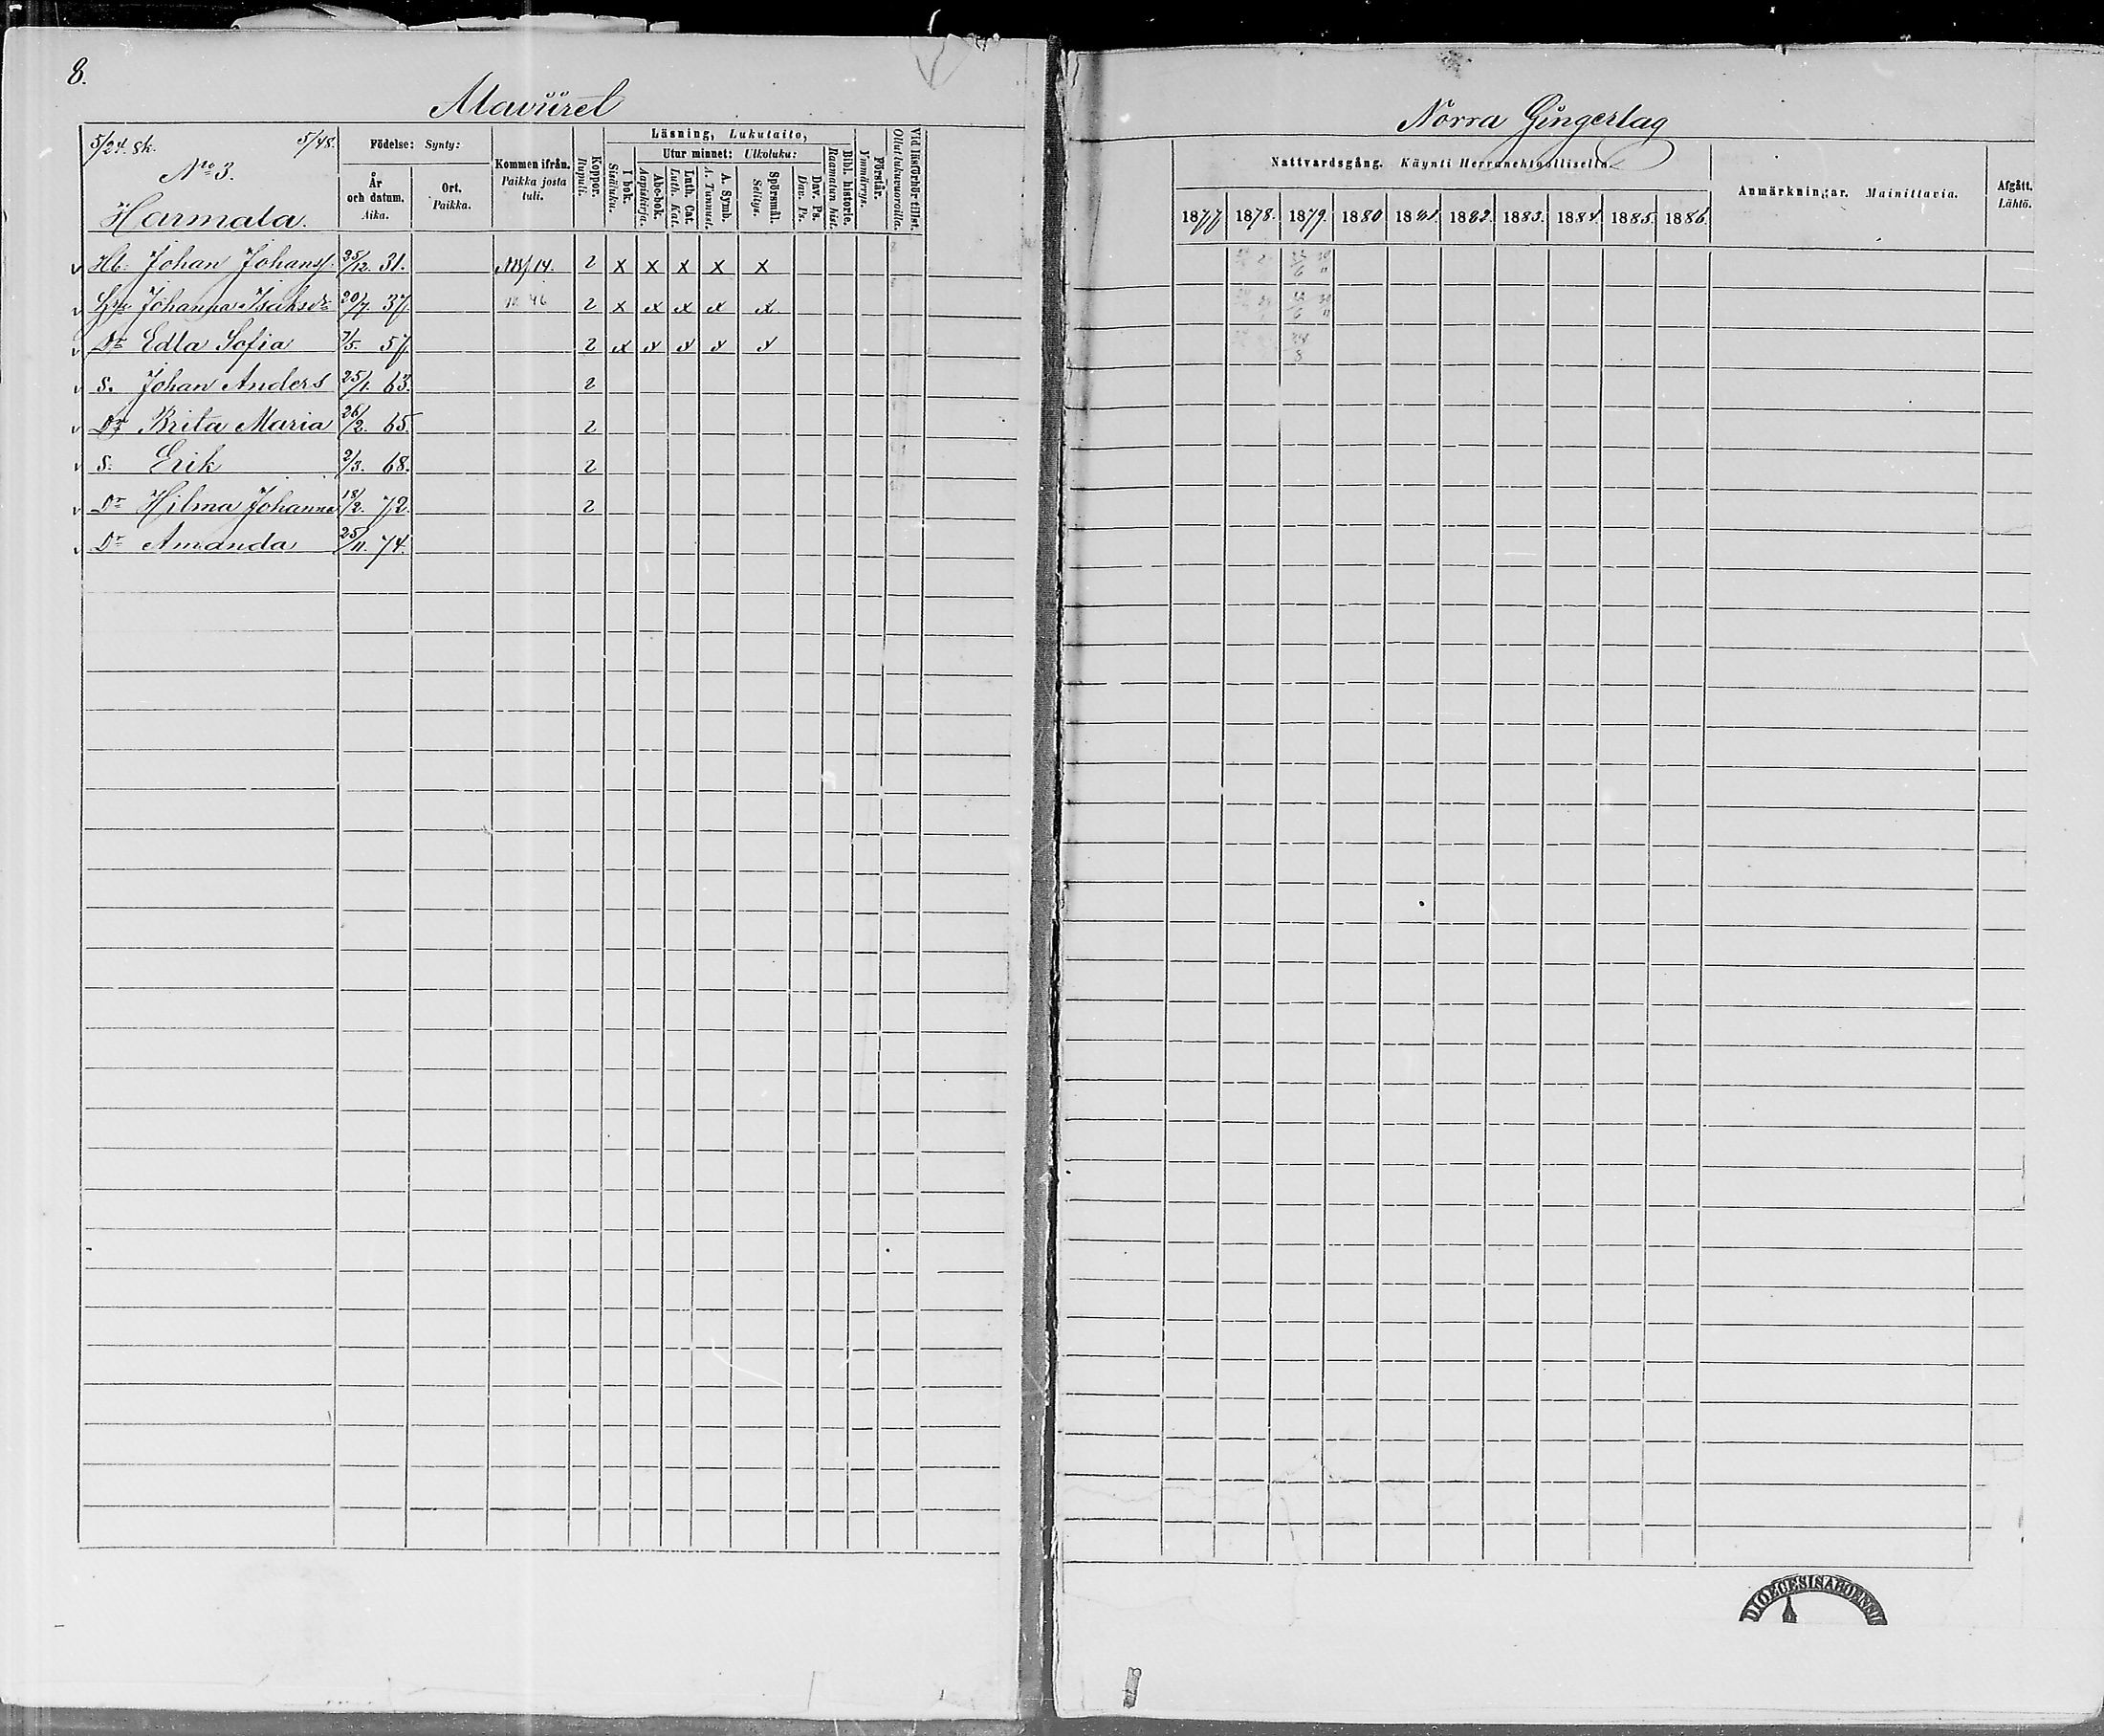 8.
5/24. sk. 5/48.
No 3.
Harmala.
Födelse: Synty:
År och datum. Aika.
Ort. Paikka.
Kommen ifrån. Paikka josta tuli.
Koppor. Rupuli.
Läsning, Lukutaito,
I bok. Sisäluku.
Utur minnet: Ulkoluku:
Abc-bok. Aapiskirja.
Luth. Cat. Luth. Kat.
A. Symb. A. Tunnust.
Spörsmål. Selitys.
Dav. Ps. Dav. Ps.
Bibl. historie. Raamatun hist.
Förstår. Ymmärrys.
Vid läsförhör tillst. Ollut lukuvuoroilla.
v Hb. Johan Johanss. 25/12. 31. 14. 2 x x x x x
v Johanna Isaksdr 20/7. 37. 46 2 x x x x x
v Dr Edla Sofia 7/5. 57. 2 x x x x x
v S. Johan Anders 25/1. 63. 2
v Dr Brita Maria 26/2. 65. 2
v S. Erik 2/3. 68. 2
v Dr Hilma Johanna 18/2. 72. 2
v Dr Amanda 25/11. 74.
Norra Gingerlag
Nattvardsgång. Käynti Herranehtoollisella.
1877 1878. 1879. 1880 1881. 1882. 1883. 1884. 1885. 1886.
Anmärkningar. Mainittavia.
Afgått. Lähtö.
DIOECESIS ABOENSIS